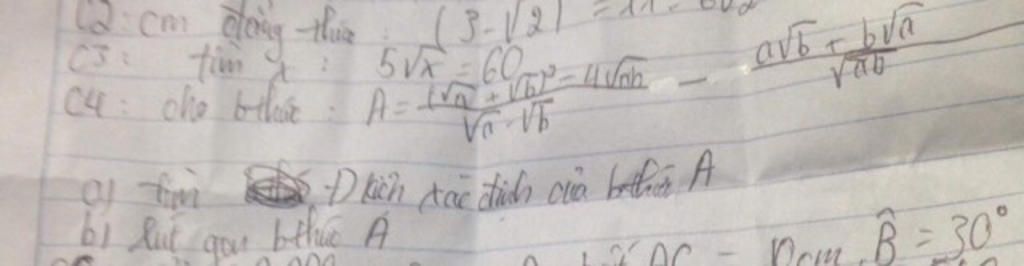 C2: cm đẳng thức : (3-√2) = 11 - 6√2
C3: tìm x : 5√x = 60
C4: cho b thức : A = ((√a + √b)² - 4√ab)/(√a - √b) - (a√b + b√a)/√ab
a) tìm Đ kiện xác định của b thức A
b) Rút gọn b thức A
AC = 10cm, B̂ = 30°